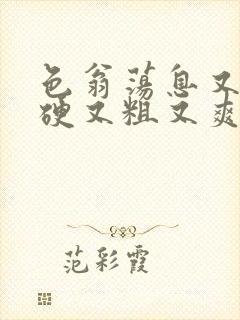 色翁荡息又
硬又粗又爽
范彩霞